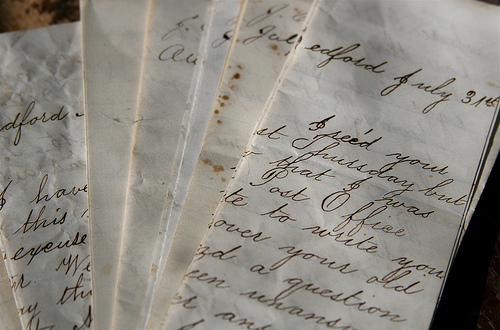 dford
I have
this
excuse
We
J.
Au
J.
J Jul
edford July 31st
I rec'd your
st Thursday but
that I was
Post Office
te to write you
over your old
a question
or an